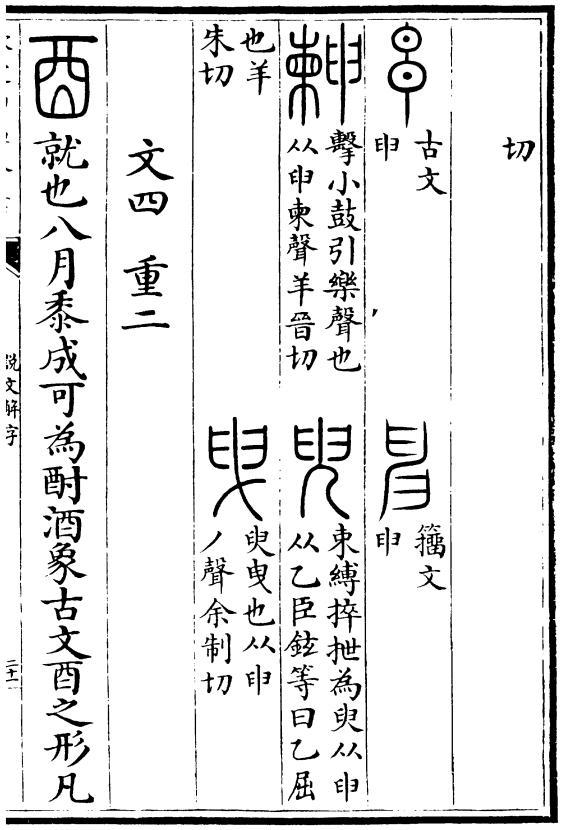 切
古文
申
籒文
申
朄
擊小鼓引樂聲也
从申柬聲羊晉切
臾
束縛捽抴為臾从申
从乙臣鉉等曰乙屈
也羊
朱切
曳
臾曳也从申
丿聲余制切
文四 重二
酉 就也八月黍成可為酎酒象古文酉之形凡
說文解字